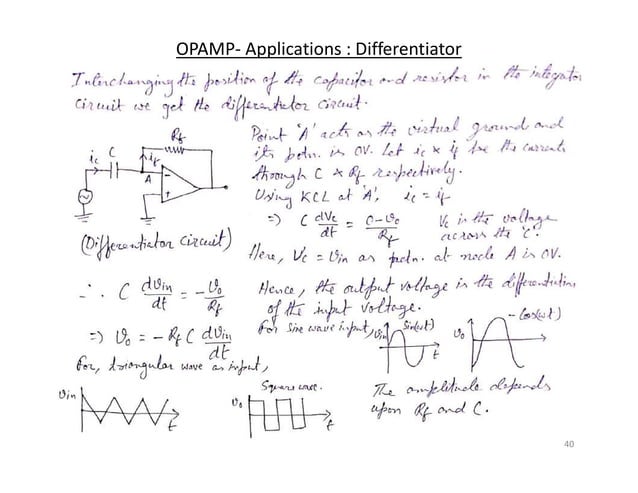 OPAMP- Applications : Differentiator
Interchanging the position of the capacitor and resistor in the integrator
circuit we get the differentiator circuit.
Rf
C
ic
if
A
-
+
(Differentiator Circuit)
Point 'A' acts as the virtual ground and
its potn. is 0V. Let ic & if be the currents
through C & Rf respectively.
Using KCL at 'A', ic = if
=> C dVc/dt = 0-vo/Rf Vc is the voltage
across the 'C'.
Here, Vc = Vin as potn. at node A is 0V.
∴ C dvin/dt = -vo/Rf
Hence, the output voltage is the differentiation
of the input voltage.
=> vo = -Rf C dvin/dt
For sine wave input, vin sin(ωt) t
vo -Cos(ωt) t
For, triangular wave as input,
vin t
Square wave.
vo t
The amplitude depends
upon Rf and C.
40